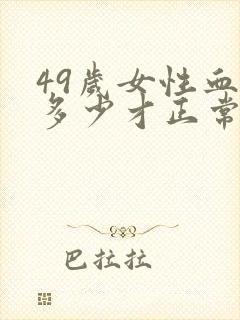 49歲女性血
多少才正常
巴拉拉